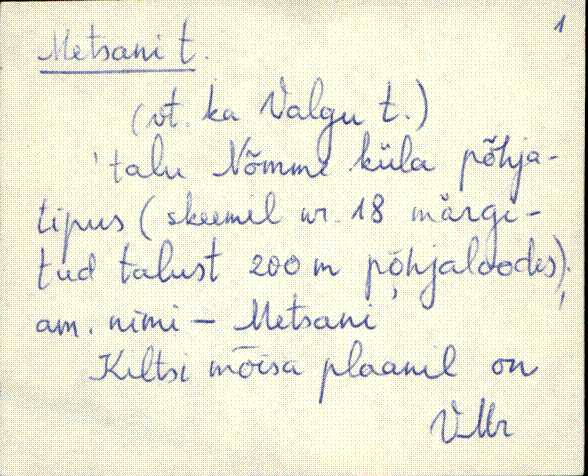 1
Metsani t.
(vt. ka Valgu t.)
'talu Nõmme küla põhja-
tipus (skeemil nr. 18 märgi-
tud talust 200 m põhjaloodes),
am. nimi – Metsani
Kiltsi mõisa plaanil on
VMr